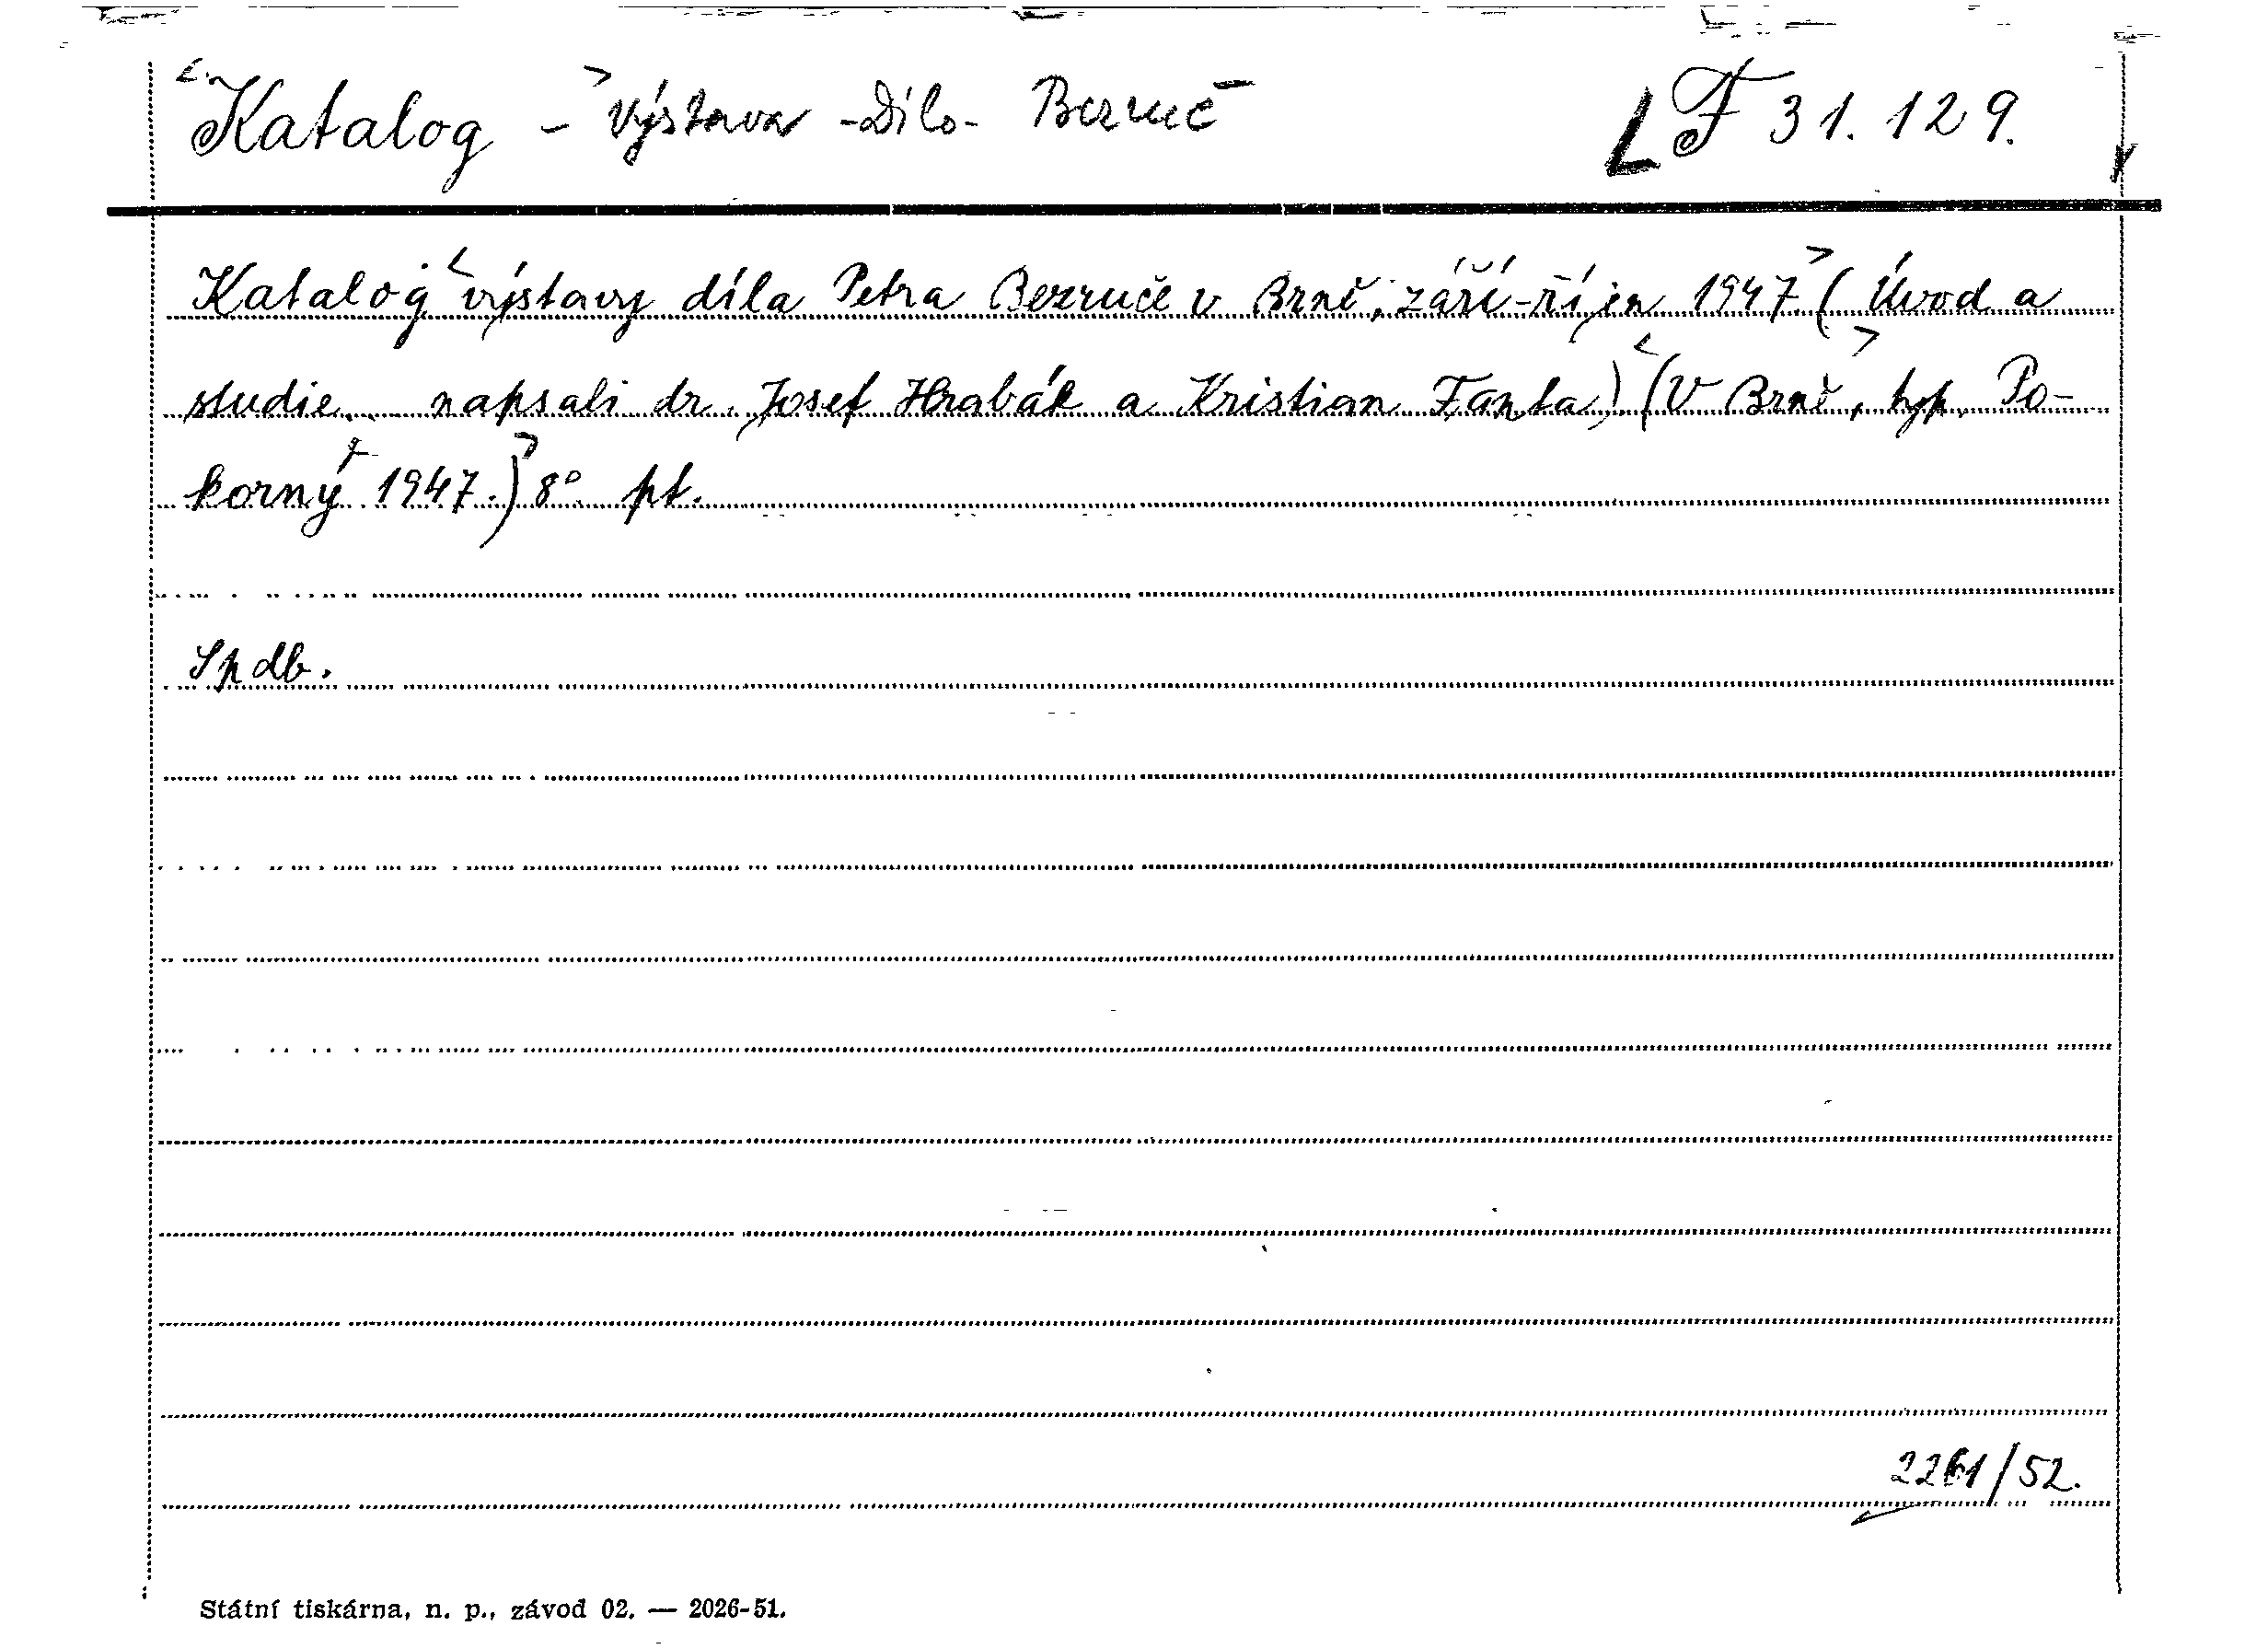 Katalog - výstava - Dílo - Bezruč F 31.129.
Katalog výstavy díla Petra Bezruče v Brně, září-říjen 1947 (Úvod a
studie... napsali dr. Josef Hrabák a Kristian Fanta) (V Brně, typ. Po-
korný 1947.) 8° pt.
Sp db.
2261/52.
Státní tiskárna, n. p., závod 02. — 2026-51.